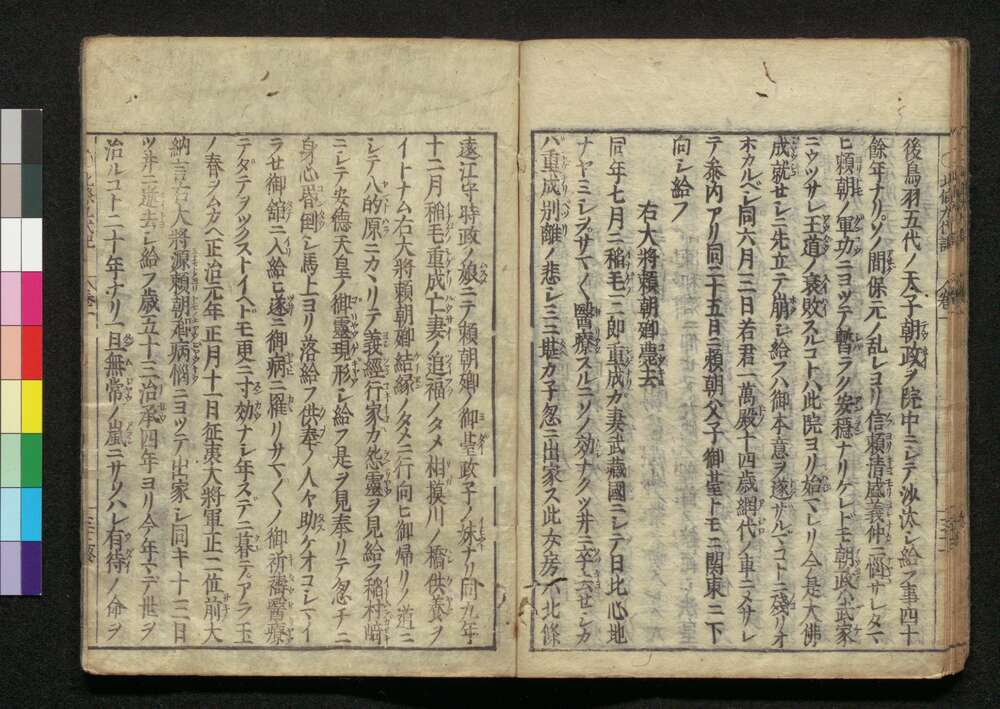 後鳥羽五代ノ天子朝政ヲ院中ニシテ沙汰シ給フ事四十
餘年ナリソノ間保元ノ乱レヨリ信頼清盛義仲ニ悩サレタマ
ヒ頼朝ノ軍功ニヨツテ暫ラク安穏ナリケレドモ朝政ハ武家
ニウツサレ王道ノ衰敗スルコトハ此院ヨリ始マレリ今是大佛
成就セシニ先立テ崩シ給フハ御本意ヲ遂サルヿコトニ殘リオ
ホカルベシ同六月三日若君一萬殿十四歳網代ノ車ニメサレ
テ参内アリ同二十五日ニ頼朝父子御臺トモニ関東ニ下
向シ給フ
右大將頼朝卿薨去
同年七月ニ稲毛三郎重成カ妻武蔵國ニシテ日比心地
ナヤミシヲサマ〱醫療スルニソノ効ナクツ井ニ卒去セシカ
バ重成別離ノ悲シミニ堪カ子忽ニ出家ス此女房ハ北條
遠江守時政ノ娘ニテ頼朝卿ノ御臺政子ノ妹ナリ同九年
十二月稲毛重成亡妻ノ追福ノタメ相摸川ノ橋供養ヲ
イトナム右大將頼朝卿結縁ノタメニ行向ヒ御帰リノ道ニ
シテ八的原ニカヽリテ義經行家カ怨靈ヲ見給フ稲村﨑
ニシテ安徳天皇ノ御靈現形シ給フ是ヲ見奉リテ忽チニ
身心昏倒シ馬上ヨリ落給フ供奉ノ人々助ケオコシマイ
ラセ御舘ニ入給ヒ遂ニ御病ニ罹リサマ〱ノ御祈禱醫療
テダテヲツクストイヘドモ更ニ寸効ナシ年ステニ暮テアラ玉
ノ春ヲムカヘ正治元年正月十一日征夷大將軍正二位前大
納言右大將源頼朝卿病悩ニヨツテ出家シ同キ十三日
ツ井ニ逝去シ給フ歳五十三治承四年ヨリ今年マデ世ヲ
治ルコト二十年ナリ一旦無常ノ嵐ニサソハレ有待ノ命ヲ